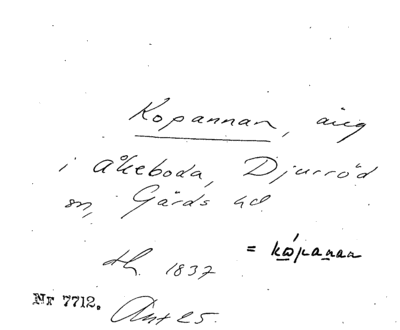 Kopannan, äng
i Åkeboda, Djurröd
sn, Gärds hd
= kópanan
dh. 1837
Nr 7712. Ant 25.